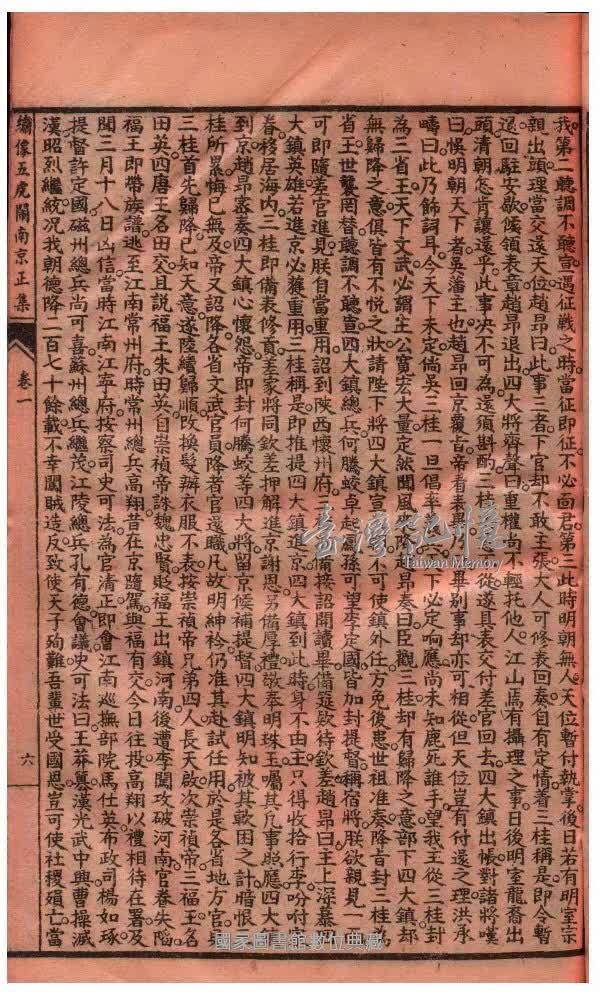 我第二聽調不聽宣遇征戰之時當征即征不必面君第三此時明朝無人天位暫付執掌後日若有明室宗
親出頭理當交還天位趙昂曰此事三者下官却不敢主張大人可修表回奏自有定情着三桂稱是即令暫
退回駐安歇候領表章趙昂退出四大將齊聲曰重權尚不輕托他人江山焉有攝理之事日後明室龍裔出
頭清朝怎肯讓還乎此事决不可為還須斟酌三桂不從遂具表交付差官回去四大鎮出帳對諸將嘆
曰恨明朝天下者吳藩主也趙昂回京覆旨帝看表畢別事却亦可相從但天位豈有付還之理洪承
疇曰此乃飾詞耳今天下未定倘吳三桂一旦倡率天下必定响應尚未知鹿死誰手望我主從三桂封
為三省王天下文武必謂主公寬宏大量定然聞風歸降趙昂奏曰臣觀三桂却有歸降之意部下四大鎮却
無歸降之意俱皆有不悅之狀請陛下將四大鎮宣不可使鎮外任方免後患世祖准奏降旨封三桂為
省王世襲罔替聽調不聽宣四大鎮總兵何騰蛟卓起孫可望李定國皆加封提督稱宿將朕欲親見一
可即隨差官進見朕自當重用詔到陝西懷州府備接詔開讀畢備筵欵待欽差趙昂曰主上深慕四
大鎮英雄若進京必獲重用三桂稱是即推提四大鎮進京四大鎮到此時身不由主只得收拾行李吩咐家
眷移居海內三桂即備表修貢差家將同欽差押解進京謝恩另備厚禮敬奉明珠王囑其凡事照應四大鎮
到京趙昂密奏四大鎮心懷怨帝即封何騰蛟等四大將留京候補提督四大鎮明知被其軟困之計暗恨三
桂所累悔已無及帝又詔降各省文武官員降者官還職凡故明紳衿仍准其赴試任用於是各省地方官見
三桂首先歸降已知天意遂陸續歸順改換髮辦衣服不表按崇禎帝兄弟四人長天啟次崇禎帝三福王名
田英四唐王名田交且説福王朱田英自崇禎帝誅魏忠賢貶福王出鎮河南後遭李闖攻破河南官眷失陷
福王即帶族譜逃至江南常州府時常州總兵高翔昔在京隨駕與福有交今日往投高翔以禮相待在署及
聞三月十八日凶信當時江南江寧府按察司史可法為官清正即會江南巡撫部院馬仕英布政司楊如琢
提督許定國磁州總兵尚可喜蘇州總兵繼茂江陵總兵孔有德會議史可法曰王莽篡漢光武中興曹操滅
漢昭烈繼統况我朝德降二百七十餘載不幸闖賊造反致使天子殉難吾輩世受國恩豈可使社稷殞亡當
繡像五虎鬧南京正集
卷一
六
臺灣記憶
Taiwan Memory
國家圖書館數位典藏